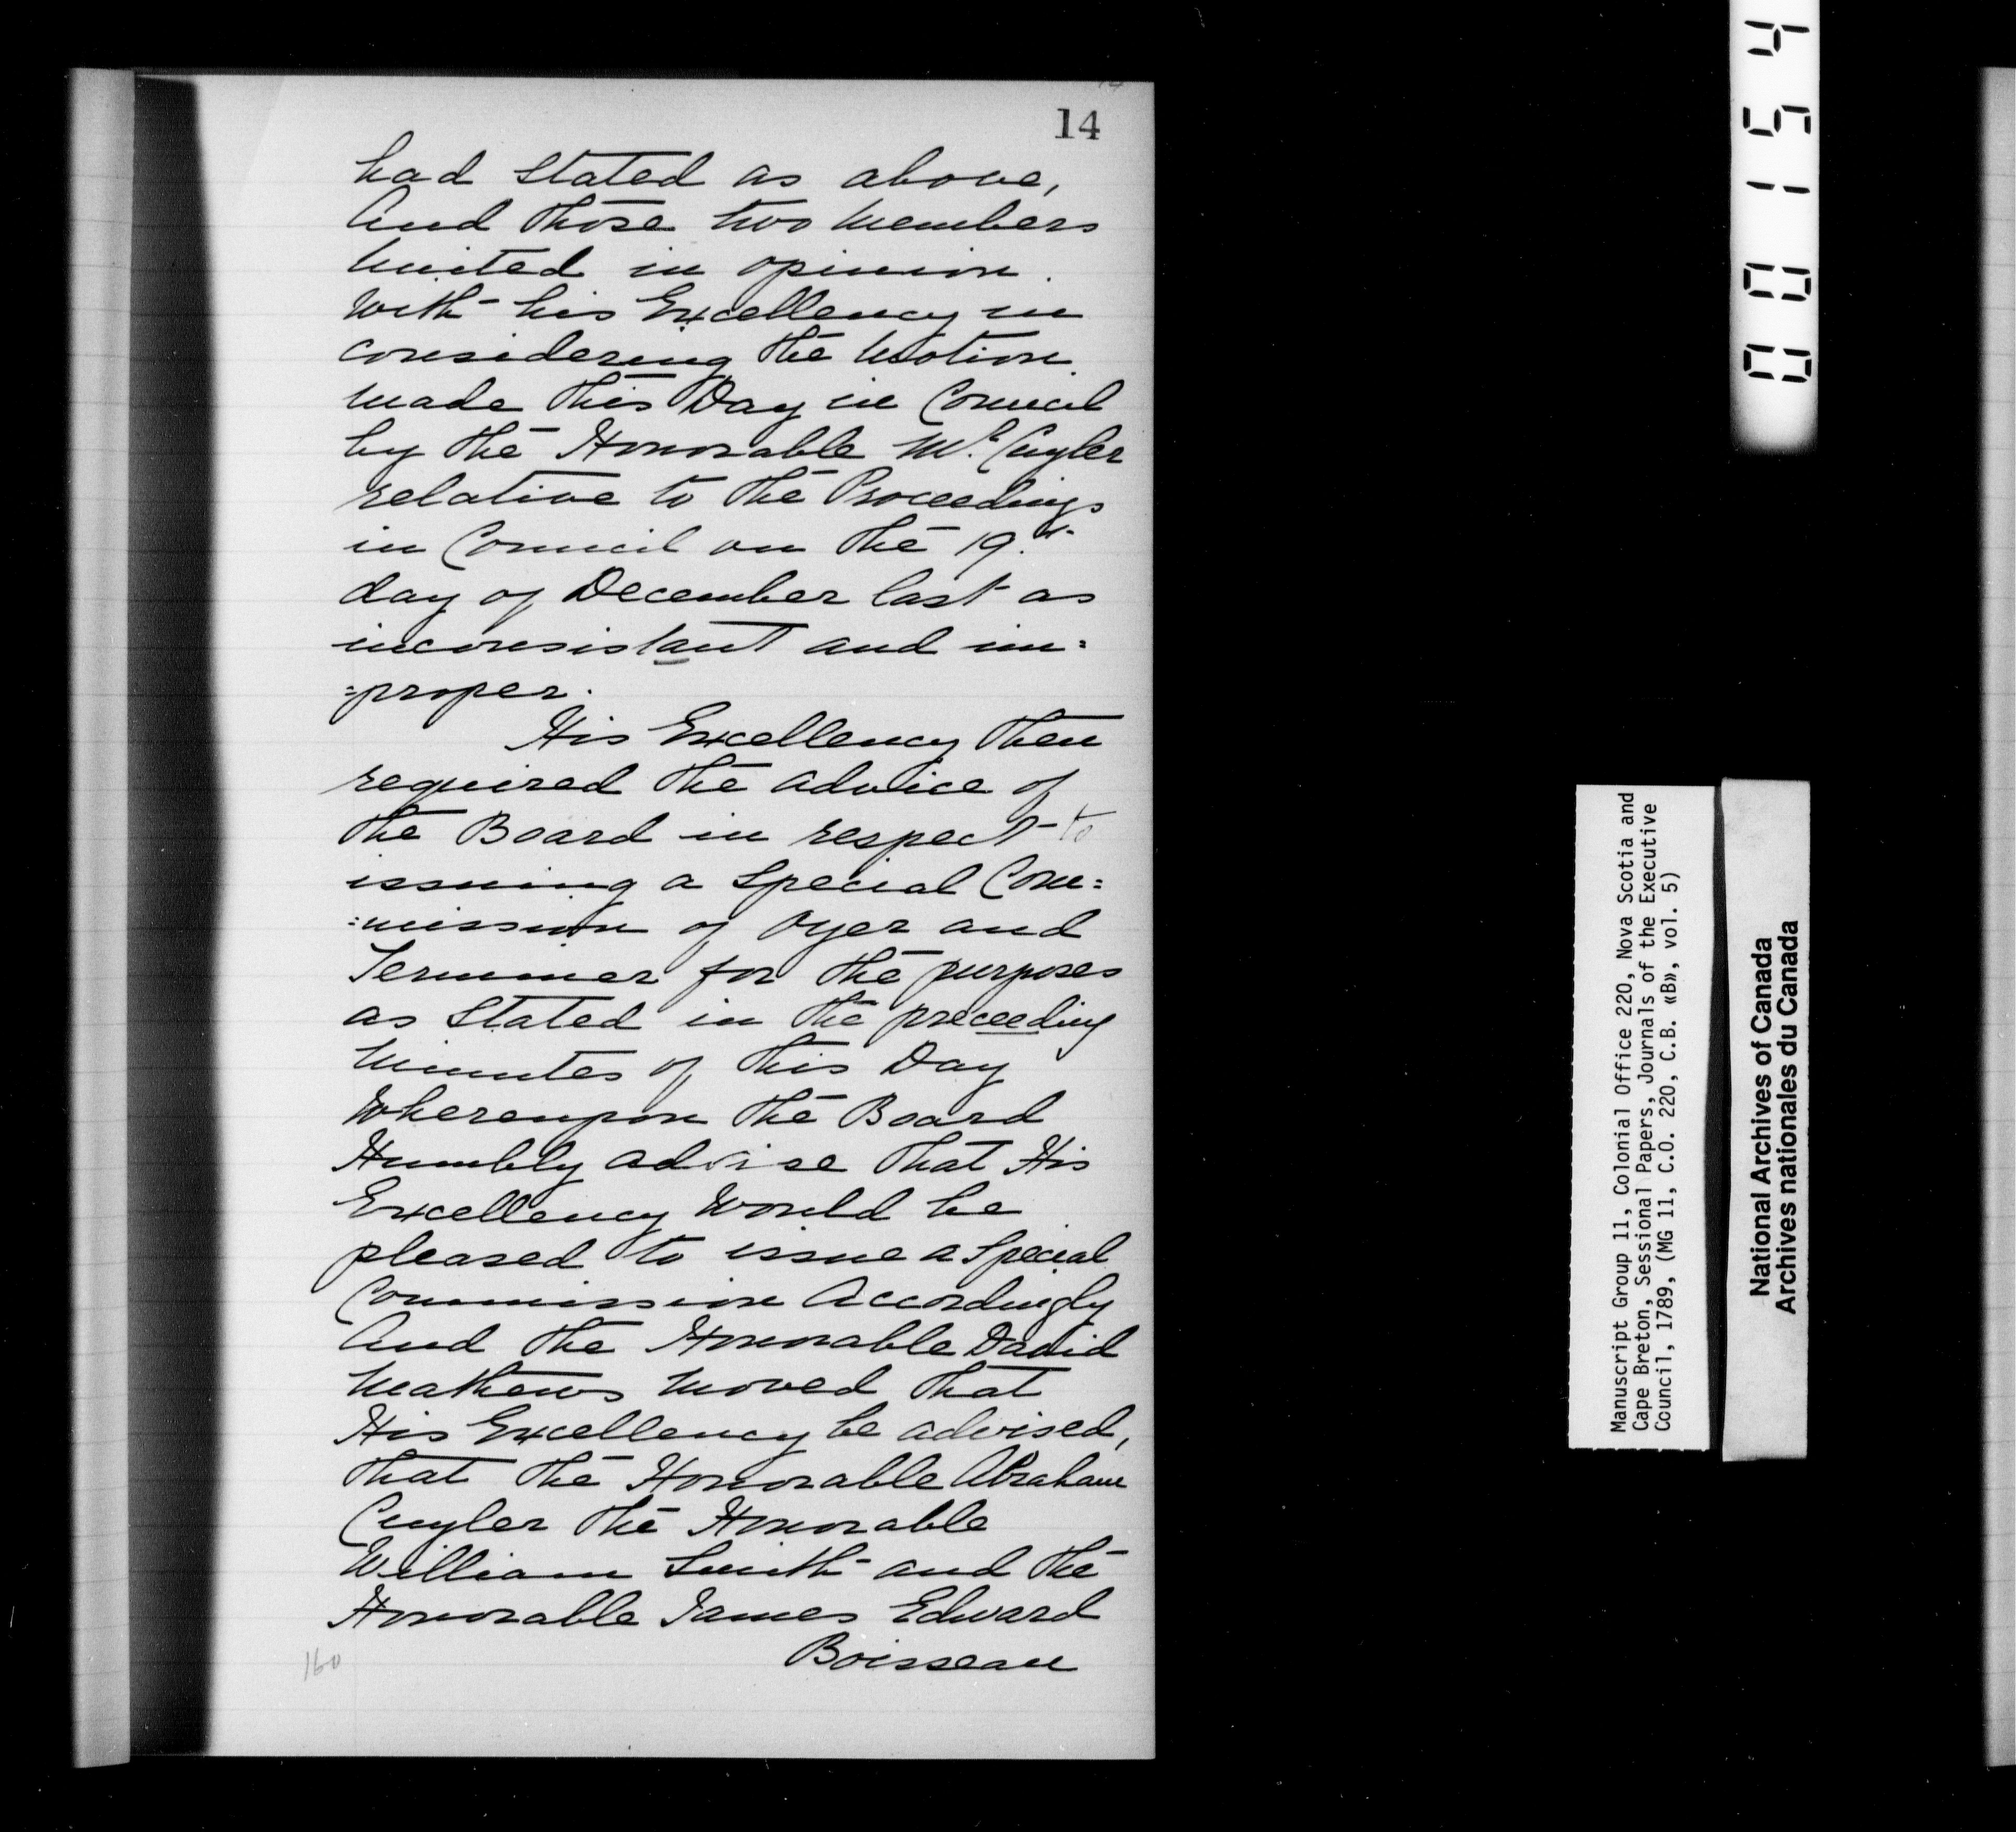 14
had Stated as above,
And those two Members
United in opinion
With his Excellency in
considering the Motion
Made this Day in Council
by the Honorable Mr. Cuyler
relative to the Proceedings
in Council on the 19.th
day of December last as
inconsistant and im=
=proper.
His Excellency then
required the advice of
the Board in respect to
issuing a Special Com=
=mission of Oyer and
Terminer for the purposes
as Stated in the preceeding
Minutes of this Day
Whereupon the Board
Humbly advise that His
Excellency Would be
pleased to issue a Special
Commission Accordingly
And the Honorable David
Mathews Moved that
His Excellency be advised,
that the Honorable Abraham
Cuyler the Honorable
William Smith and the
Honorable James Edward
Boisseau
160
00154
Manuscript Group 11, Colonial Office 220, Nova Scotia and
Cape Breton, Sessional Papers, Journals of the Executive
Council, 1789, (MG 11, C.O. 220, C.B. «B», vol. 5)
National Archives of Canada
Archives nationales du Canada